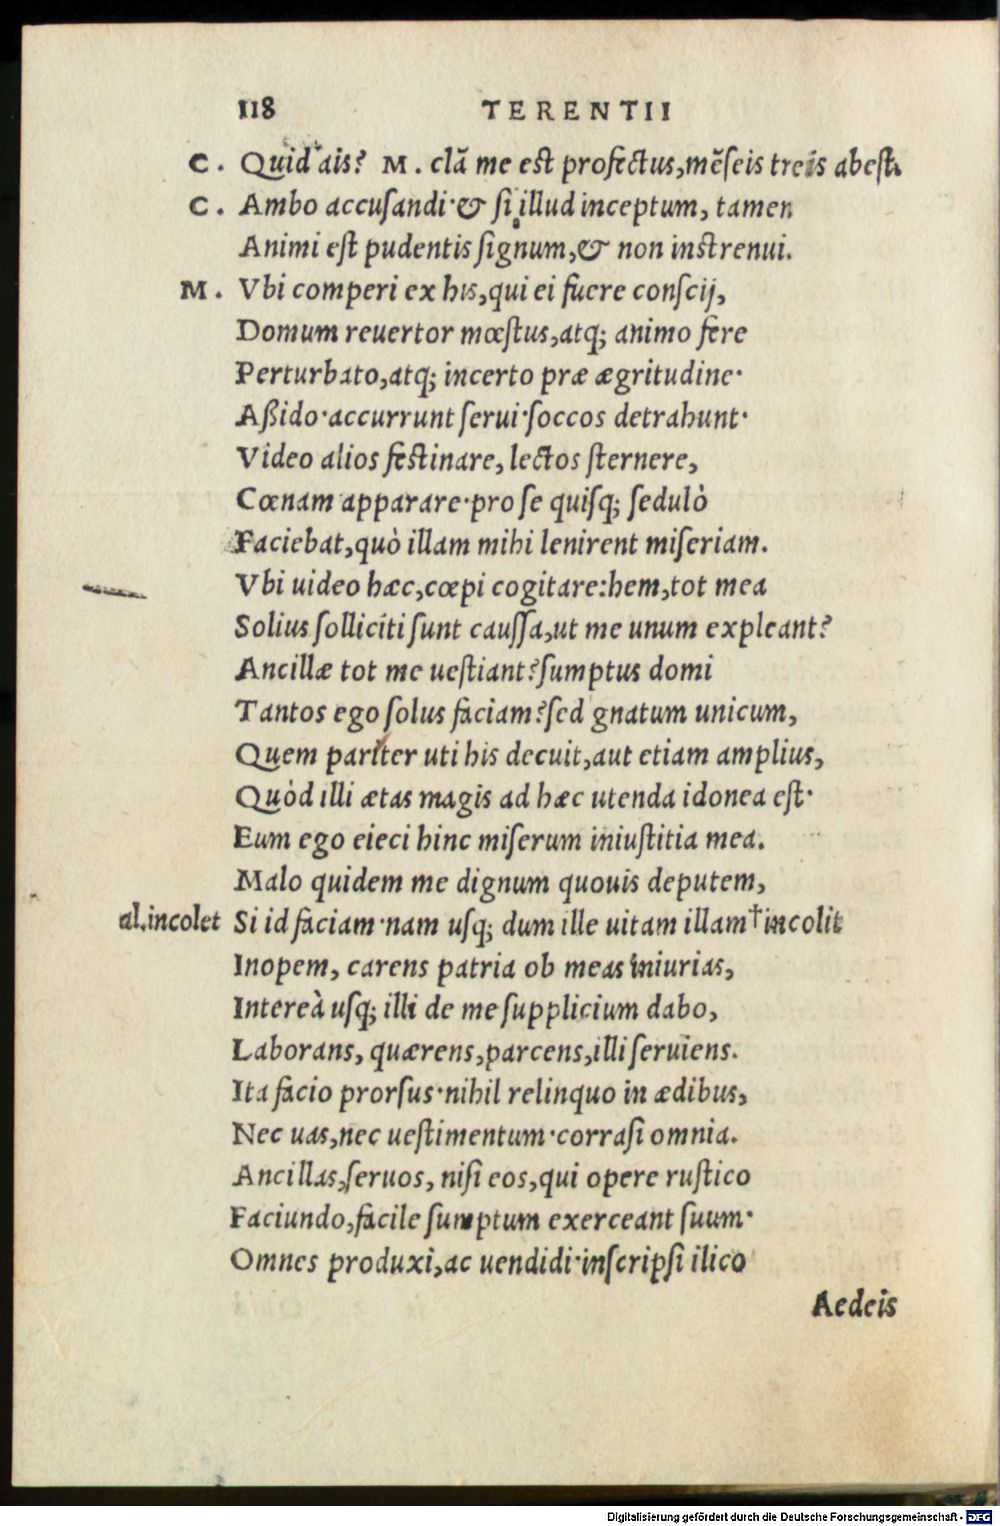 118 TERENTII
C. Quid ais? M. clā me est profectus,mēseis treis abest.
C. Ambo accusandi·& si illud inceptum, tamen
Animi est pudentis signum,& non instrenui.
M. Vbi comperi ex his,qui ei fuere conscij,
Domum reuertor mœstus,atq; animo fere
Perturbato,atq; incerto præ ægritudine·
Aßido·accurrunt serui·soccos detrahunt·
Video alios festinare, lectos sternere,
Cœnam apparare·pro se quisq; sedulò
Faciebat,quò illam mihi lenirent miseriam.
Vbi uideo hæc,cœpi cogitare:hem,tot mea
Solius solliciti sunt caussa,ut me unum expleant?
Ancillæ tot me uestiant?sumptus domi
Tantos ego solus faciam?sed gnatum unicum,
Quem pariter uti his decuit,aut etiam amplius,
Quòd illi ætas magis ad hæc utenda idonea est·
Eum ego eieci hinc miserum iniustitia mea.
Malo quidem me dignum quouis deputem,
al.incolet Si id faciam·nam usq; dum ille uitam illam†incolit
Inopem, carens patria ob meas iniurias,
Intereà usq; illi de me supplicium dabo,
Laborans, quærens,parcens,illi seruiens.
Ita facio prorsus·nihil relinquo in ædibus,
Nec uas,nec uestimentum·corrasi omnia.
Ancillas,seruos, nisi eos,qui opere rustico
Faciundo,facile sumptum exerceant suum·
Omnes produxi,ac uendidi·inscripsi ilico
Aedeis
Digitalisierung gefördert durch die Deutsche Forschungsgemeinschaft - DFG